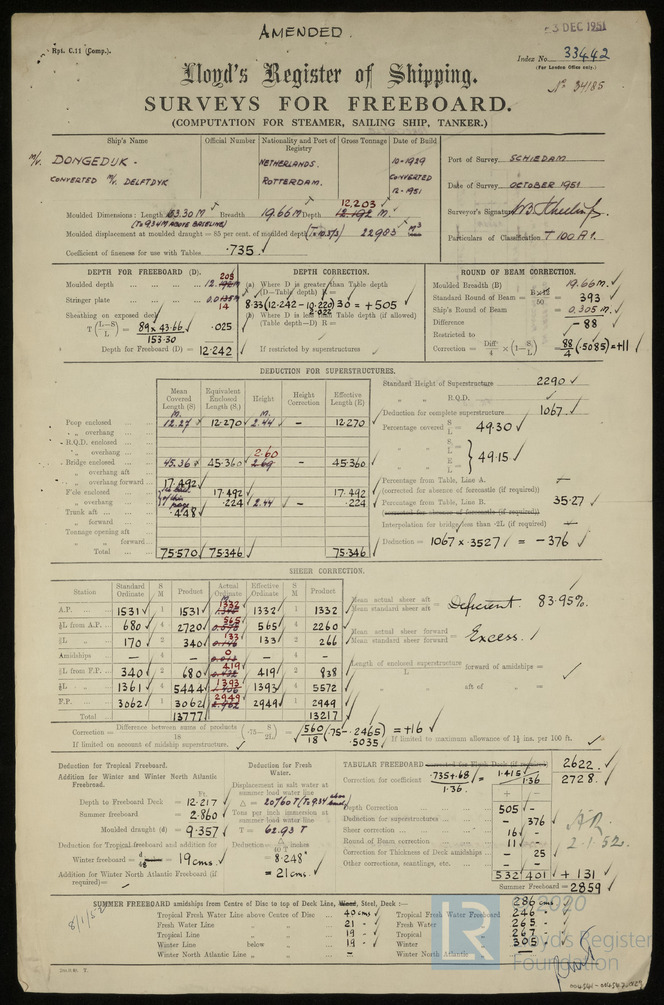 AMENDED.
3 DEC 1951
Rpt. C.11 (Comp.).
Index No. 33442
(For London Office only.)
No 34185
Lloyd's Register of Shipping.
SURVEYS FOR FREEBOARD.
(COMPUTATION FOR STEAMER, SAILING SHIP, TANKER.)
Ship's Name Official Number Nationality and Port of Registry Gross Tonnage Date of Build
M/V. DONGEDIJK - NETHERLANDS. 10-1929
CONVERTED M/V. DELFTDYK ROTTERDAM. CONVERTED 12-1951
Port of Survey SCHIEDAM
Date of Survey OCTOBER 1951
Surveyor's Signature
Particulars of Classification T 100 A1.
12.203
Moulded Dimensions: Length 153.30 M Breadth 19.66 M Depth 12.192 M
(To 9.34 M ABOVE BASELINE)
Moulded displacement at moulded draught = 85 per cent. of moulded depth 22983 M3
Coefficient of fineness for use with Tables .735
DEPTH FOR FREEBOARD (D).
Moulded depth 12.203
Stringer plate 14
Sheathing on exposed deck
T (L-S / L) = 89 x 43.66 / 153.30 = .025
Depth for Freeboard (D) = 12.242
DEPTH CORRECTION.
(a) Where D is greater than Table depth
(D-Table depth) R =
8.33 (12.242 - 10.220) 30 = +505
2.022
(b) Where D is less than Table depth (if allowed)
(Table depth-D) R =
If restricted by superstructures
ROUND OF BEAM CORRECTION.
Moulded Breadth (B) 19.66 m.
Standard Round of Beam = B x 12 / 50 = 393
Ship's Round of Beam = 0.305 m.
Difference - 88
Restricted to
Correction = Diff / 4 x (1 - S1 / L) = 88 / 4 (.5085) = +11
DEDUCTION FOR SUPERSTRUCTURES.
Mean Covered Length (S) Equivalent Enclosed Length (S1) Height Height Correction Effective Length (E)
Poop enclosed 12.27 12.270 2.44 - 12.270
" overhang
R.Q.D. enclosed
" overhang
2.60
Bridge enclosed 45.36 45.360 2.69 45.360
" overhang aft
" overhang forward
F'cle enclosed 17.492 17.492 17.492
" overhang .448 .224 2.44 - .224
Trunk aft
" forward
Tonnage opening aft
" " forward
Total 75.570 75.346 75.346
Standard Height of Superstructure 2290
" " R.Q.D.
Deduction for complete superstructure 1067
Percentage covered S / L = 49.30
S1 / L
E / L = 49.15
Percentage from Table, Line A.
(corrected for absence of forecastle (if required))
Percentage from Table, Line B. 35.27
(corrected for absence of forecastle (if required))
Interpolation for bridge less than .2L (if required)
Deduction = 1067 x .3527 = -376
SHEER CORRECTION.
Station Standard Ordinate S M Product Actual Ordinate Effective Ordinate S M Product
A.P. 1531 1 1531 1332 1332 1 1332
⅙L from A.P. 680 4 2720 565 565 4 2260
⅓L " 170 2 340 133 133 2 266
Amidships - 4 - 0 - 4 -
⅓L from F.P. 340 2 680 419 419 2 838
⅙L " 1361 4 5444 1393 1393 4 5572
F.P. 3062 1 3062 2949 2949 1 2949
Total 13777 13217
Mean actual sheer aft / Mean standard sheer aft = Deficient. 83.95%.
Mean actual sheer forward / Mean standard sheer forward = Excess.
Length of enclosed superstructure / L forward of amidships =
" " aft of " =
Correction = Difference between sums of products / 18 (.75 - S / 2L) = 560 / 18 (.75 - .2465) = +16
.5035
If limited on account of midship superstructure.
If limited to maximum allowance of 1½ ins. per 100 ft.
Deduction for Tropical Freeboard.
Addition for Winter and Winter North Atlantic Freeboard.
Ft.
Depth to Freeboard Deck = 12.217
Summer freeboard = 2.860
Moulded draught (d) = 9.357
Deduction for Tropical freeboard and addition for
Winter freeboard = 19 cms.
Addition for Winter North Atlantic Freeboard (if required) =
Deduction for Fresh Water.
Displacement in salt water at summer load water line
Δ = 20760 T (To 9.34 above base)
Tons per inch immersion at summer load water line
T = 62.93 T
Deduction = Δ / 40 T inches
= 8.248"
= 21 cms.
TABULAR FREEBOARD corrected for Flush Deck (if required) 2622.
Correction for coefficient .735 + .68 / 1.36 = 1.415 / 1.36 2728.
+ -
Depth Correction 505 -
Deduction for superstructures - 376
Sheer correction 16 -
Round of Beam correction 11 -
Correction for Thickness of Deck amidships - 25
Other corrections, scantlings, etc. - -
532 401 + 131
Summer Freeboard = 2859
2.1.52.
8/1/52
SUMMER FREEBOARD amidships from Centre of Disc to top of Deck Line, Wood, Steel, Deck :— 286 cms
Tropical Fresh Water Line above Centre of Disc 40 cms Tropical Fresh Water Freeboard 246
Fresh Water Line " " 21 Fresh Water " 265
Tropical Line " " 19 Tropical " 267
Winter Line below " 19 Winter " 305
Winter North Atlantic Line " " - Winter North Atlantic " -
LR
© 2020
Lloyd's Register
Foundation